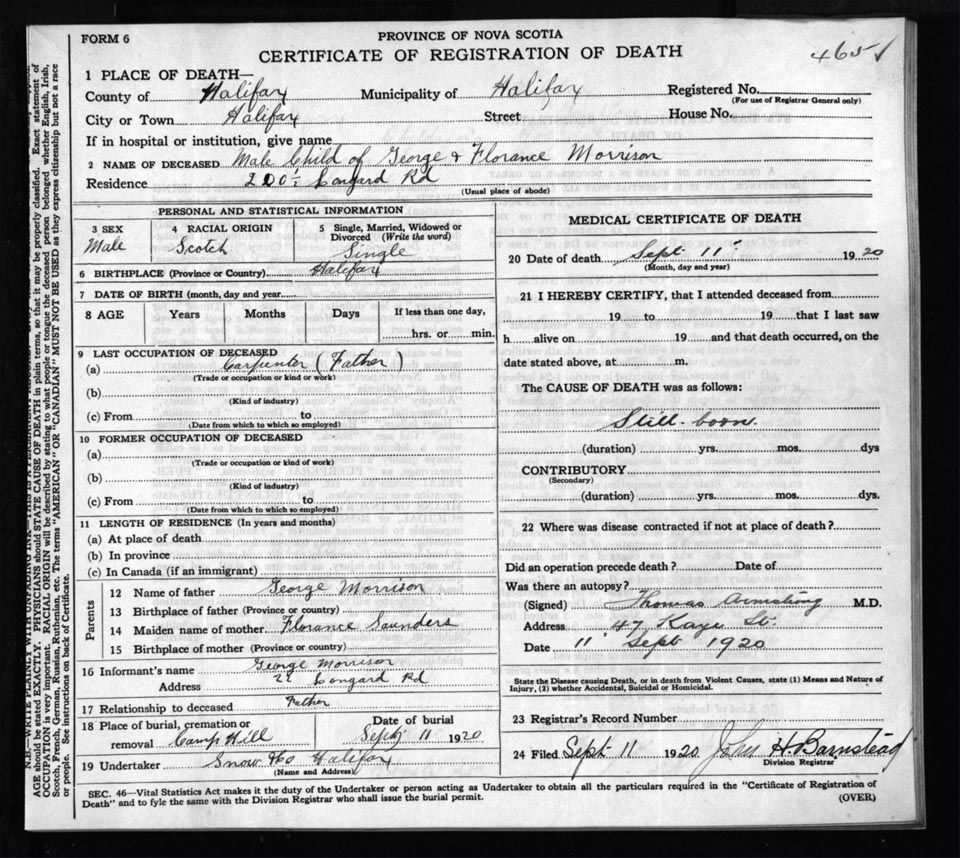 FORM 6
PROVINCE OF NOVA SCOTIA
CERTIFICATE OF REGISTRATION OF DEATH
465
1 PLACE OF DEATH—
County of Halifax Municipality of Halifax Registered No.
(For use of Registrar General only)
City or Town Halifax Street House No.
If in hospital or institution, give name
2 NAME OF DECEASED Male Child of George & Florance Morrison
Residence Longard Rd
(Usual place of abode)
PERSONAL AND STATISTICAL INFORMATION
3 SEX 4 RACIAL ORIGIN 5 Single, Married, Widowed or Divorced (Write the word)
Male Scotch Single
6 BIRTHPLACE (Province or Country) Halifax
7 DATE OF BIRTH (month, day and year
8 AGE Years Months Days If less than one day,
hrs. or min.
9 LAST OCCUPATION OF DECEASED
(a) Carpenter (Father)
(Trade or occupation or kind or work)
(b)
(Kind of industry)
(c) From to
(Date from which to which so employed)
10 FORMER OCCUPATION OF DECEASED
(a)
(Trade or occupation or kind of work)
(b)
(Kind of industry)
(c) From to
(Date from which to which so employed)
11 LENGTH OF RESIDENCE (In years and months)
(a) At place of death
(b) In province
(c) In Canada (if an immigrant)
Parents
12 Name of father George Morrison
13 Birthplace of father (Province or country)
14 Maiden name of mother Florance Saunders
15 Birthplace of mother (Province or country)
16 Informant's name George Morrison
Address Longard Rd
17 Relationship to deceased Father
18 Place of burial, cremation or removal Camp Hill
Date of burial
Sept 11 1920
19 Undertaker Snow & Co Halifax
(Name and Address)
MEDICAL CERTIFICATE OF DEATH
20 Date of death Sept 11 1920
(Month, day and year)
21 I HEREBY CERTIFY, that I attended deceased from
19 to 19 that I last saw
h alive on 19 and that death occurred, on the
date stated above, at m.
The CAUSE OF DEATH was as follows:
Still-born
(duration) yrs. mos. dys
CONTRIBUTORY
(Secondary)
(duration) yrs. mos. dys.
22 Where was disease contracted if not at place of death?
Did an operation precede death? Date of
Was there an autopsy?
(Signed) Thomas Armstrong M.D.
Address 47 Kaye St.
Date 11 Sept 1920
State the Disease causing Death, or in death from Violent Causes, state (1) Means and Nature of
Injury, (2) whether Accidental, Suicidal or Homicidal.
23 Registrar's Record Number
24 Filed Sept 11 1920 John H. Barnstead
Division Registrar
SEC. 46—Vital Statistics Act makes it the duty of the Undertaker or person acting as Undertaker to obtain all the particulars required in the "Certificate of Registration of
Death" and to fyle the same with the Division Registrar who shall issue the burial permit.
(OVER)
AGE should be stated EXACTLY. PHYSICIANS should STATE CAUSE OF DEATH in plain terms, so that it may be properly classified. Exact statement of
OCCUPATION is very important. RACIAL ORIGIN will be described by stating to what people or tongue the deceased person belonged whether English, Irish,
Scotch, French, German, Russian, Ruthenian, etc. The terms "AMERICAN" OR "CANADIAN" MUST NOT BE USED as they express citizenship but not a race
or people. See instructions on back of Certificate.